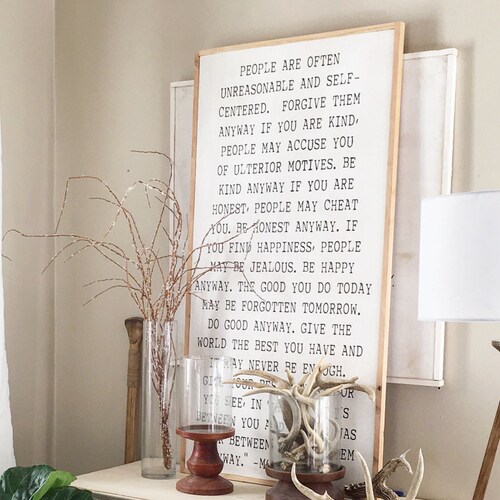 PEOPLE ARE OFTEN
UNREASONABLE AND SELF-
CENTERED. FORGIVE THEM
ANYWAY IF YOU ARE KIND,
PEOPLE MAY ACCUSE YOU
OF ULTERIOR MOTIVES. BE
KIND ANYWAY IF YOU ARE
HONEST, PEOPLE MAY CHEAT
YOU. BE HONEST ANYWAY. IF
YOU FIND HAPPINESS, PEOPLE
MAY BE JEALOUS. BE HAPPY
ANYWAY. THE GOOD YOU DO TODAY
MAY BE FORGOTTEN TOMORROW.
DO GOOD ANYWAY. GIVE THE
WORLD THE BEST YOU HAVE AND
IT MAY NEVER BE ENOUGH.
YOU SEE, IN
BETWEEN YOU
BETWEEN